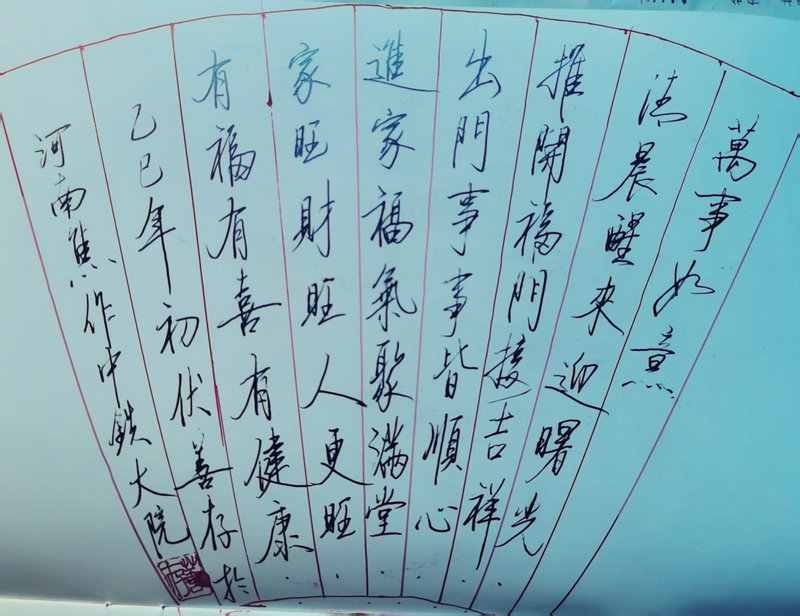 萬事如意
清晨醒来迎曙光
推開福門接吉祥
出門事事皆順心
進家福氣聚满堂
家旺財旺人更旺
有福有喜有健康
乙巳年初伏善存於
河南焦作中鉄大院